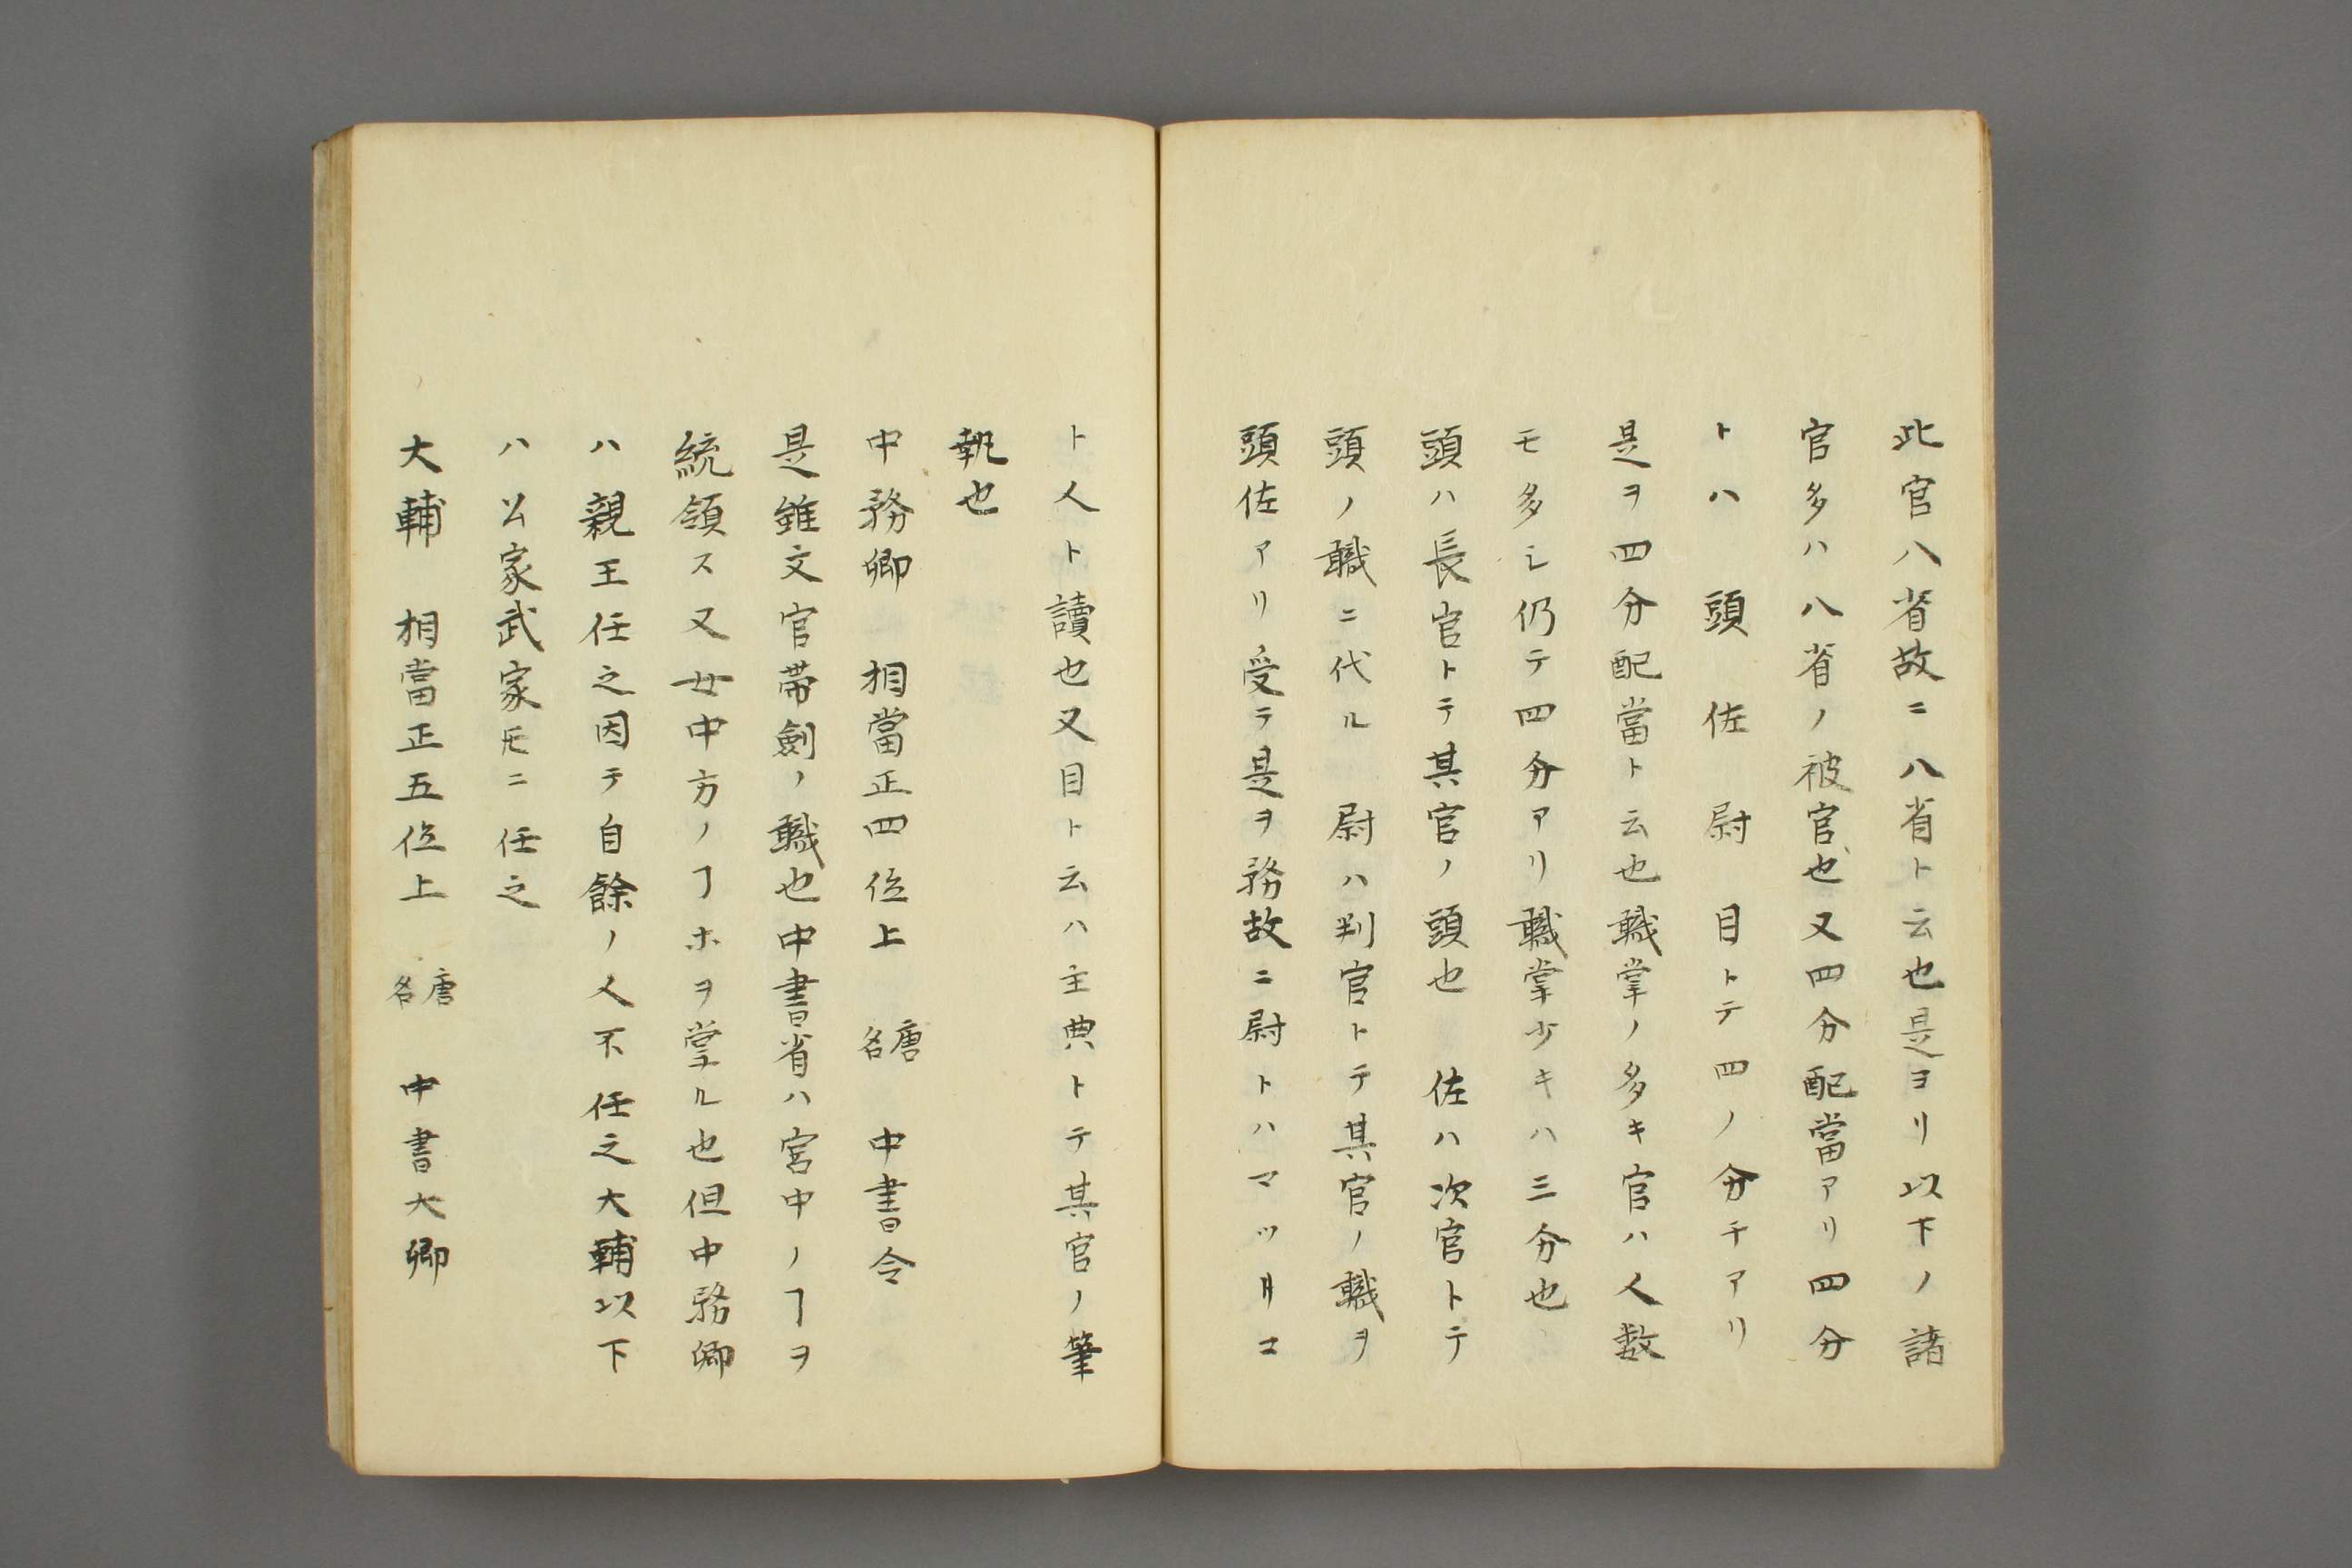 此官八省故ニ八省ト云也是ヨリ以下ノ諸
官多ハ八省ノ被官也又四分配當アリ四分
トハ　頭　佐　尉　目トテ四ノ分チアリ
是ヲ四分配當ト云也職掌ノ多キ官ハ人数
モ多シ仍テ四分アリ職掌少キハ三分也
頭ハ長官トテ其官ノ頭也　佐ハ次官トテ
頭ノ職ニ代ル　尉ハ判官トテ其官ノ職ヲ
頭佐アリ受テ是ヲ務故ニ尉トハマツリコ
ト人ト讀也又目ト云ハ主典トテ其官ノ筆
執也
中務卿　相當正四位上　唐名　中書令
是雖文官帶劍ノ職也中書省ハ宮中ノヿヲ
統領ス又女中方ノヿホヲ掌ル也但中務卿
ハ親王任之因テ自餘ノ人不任之大輔以下
ハ公家武家𪜈ニ任之
大輔　相當正五位上　唐名　中書大卿